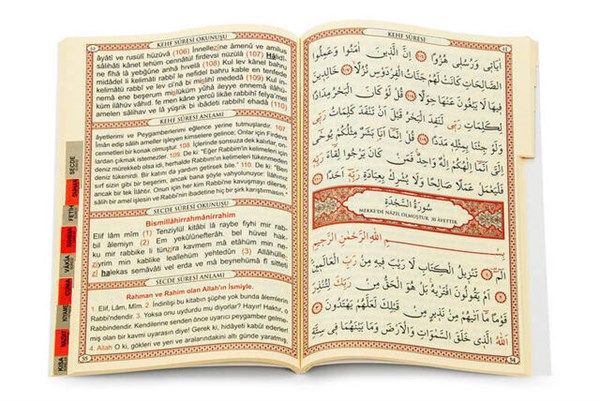 KEHF SÛRESİ OKUNUŞU
âyâtî ve rusulî hüzüvâ (106) İnnellezîne âmenû ve amilus
sâlihâti kânet lehüm cennâtül firdevsi nüzülâ (107) Hâlidî-
ne fîhâ lâ yebğûne anhâ hivelâ (108) Kul lev kânel bahru
midâdel li kelimâti rabbî le nefidel bahru kable en tenfede
kelimâtü rabbî ve lev ci'nâ bi mislihî mededâ (109) Kul in-
nemâ ene beşerum mislüküm yûhâ ileyye ennemâ ilâhü-
küm ilâhüv vâhıd. fe men kâne yercû likâe rabbihî felya'mel
amelen sâlihav ve lâ yüşrik bi ıbâdeti rabbihî ehadâ (110)
KEHF SÛRESİ ANLAMI
âyetlerimi ve Peygamberlerimi eğlence yerine tutmuşlardı. 107.
İman edip sâlih ameller işleyen kimselere gelince; Onlar için Firdevs
cennetleri bir konak olmuştur. 108. İçlerinde sonsuza dek kalırlar, on-
lardan çıkmak istemezler. 109. De ki: "Eğer Rabbim'in kelimeleri için
deniz mürekkeb olsa idi, herhalde Rabbim'in kelimeleri tükenmezden
deniz tükenirdi. Bir katını da yardım getirsek bile." 110. De ki: "Ben
sırf sizin gibi bir beşerim, ancak bana şöyle vahyolunuyor: İlâhınız
ancak bir tek İlâhtır. Onun için her kim Rabbi'ne kavuşmayı dilerse,
salih bir amel işlesin ve Rabbi'nin ibadetine hiç bir şirk karıştırmasın."
SECDE SÛRESİ OKUNUŞU
Bismillâhirrahmânirrahîm
Elif lâm mîm (1) Tenzîylül kitâbi lâ raybe fîyhi mir rab-
bil âlemiyn (2) Em yekûlûnefterâh. bel hüvel hak-
ku mir rabbike li tünzira kavmem mâ etâhüm min ne-
zîrim min kablike leallehüm yehtedûn (3) Allâhülle-
zî halekas semâvâti vel erda ve mâ beynehümâ fî sitteti
SECDE SÛRESİ ANLAMI
Rahman ve Rahim olan Allah'ın İsmiyle.
1. Elif, Lâm, Mîm. 2. İndirilişi bu kitabın şüphe yok bunda âlemlerin
Rabbi'ndendir. 3. Yoksa onu uydurdu mu diyorlar? Hayır! Haktır, o
Rabbi'ndendir. Kendilerine senden önce uyarıcı peygamber gelme-
miş olan bir kavmi uyarasın diye! Gerek ki, hidâyeti kabûl ederler
4. Allah O ki, gökleri ve yeri ve aralarındakini altı günde yarattı,
SECDE
FETH
RAHMAN
VAKIA
CUMA
KIYAME
KISA
KEHF SÛRESİ
اٰيَاتٖى وَرُسُلٖى هُزُوًا ﴿١٠٦﴾ اِنَّ الَّذٖينَ اٰمَنُوا وَعَمِلُوا
الصَّالِحَاتِ كَانَتْ لَهُمْ جَنَّاتُ الْفِرْدَوْسِ نُزُلًا ﴿١٠٧﴾ خَالِدٖينَ
فٖيهَا لَا يَبْغُونَ عَنْهَا حِوَلًا ﴿١٠٨﴾ قُلْ لَوْ كَانَ الْبَحْرُ مِدَادًا
لِكَلِمَاتِ رَبّٖى لَنَفِدَ الْبَحْرُ قَبْلَ اَنْ تَنْفَدَ كَلِمَاتُ رَبّٖى
وَلَوْ جِئْنَا بِمِثْلِهٖ مَدَدًا ﴿١٠٩﴾ قُلْ اِنَّمَا اَنَا بَشَرٌ مِثْلُكُمْ يُوحٰى
اِلَىَّ اَنَّمَا اِلٰهُكُمْ اِلٰهٌ وَاحِدٌ فَمَنْ كَانَ يَرْجُوا لِقَاءَ رَبِّهٖ
فَلْيَعْمَلْ عَمَلًا صَالِحًا وَلَا يُشْرِكْ بِعِبَادَةِ رَبِّهٖ اَحَدًا ﴿١١٠﴾
سُورَةُ السَّجْدَةِ
MEKKE'DE NAZİL OLMUŞTUR. 30 AYETTİR.
بِسْمِ اللّٰهِ الرَّحْمٰنِ الرَّحٖيمِ
الٓمٓ ﴿١﴾ تَنْزٖيلُ الْكِتَابِ لَا رَيْبَ فٖيهِ مِنْ رَبِّ الْعَالَمٖينَ ﴿٢﴾
اَمْ يَقُولُونَ افْتَرٰيهُ بَلْ هُوَ الْحَقُّ مِنْ رَبِّكَ لِتُنْذِرَ
قَوْمًا مَا اَتٰيهُمْ مِنْ نَذٖيرٍ مِنْ قَبْلِكَ لَعَلَّهُمْ يَهْتَدُونَ ﴿٣﴾
اَللّٰهُ الَّذٖى خَلَقَ السَّمٰوَاتِ وَالْاَرْضَ وَمَا بَيْنَهُمَا فٖى سِتَّةِ